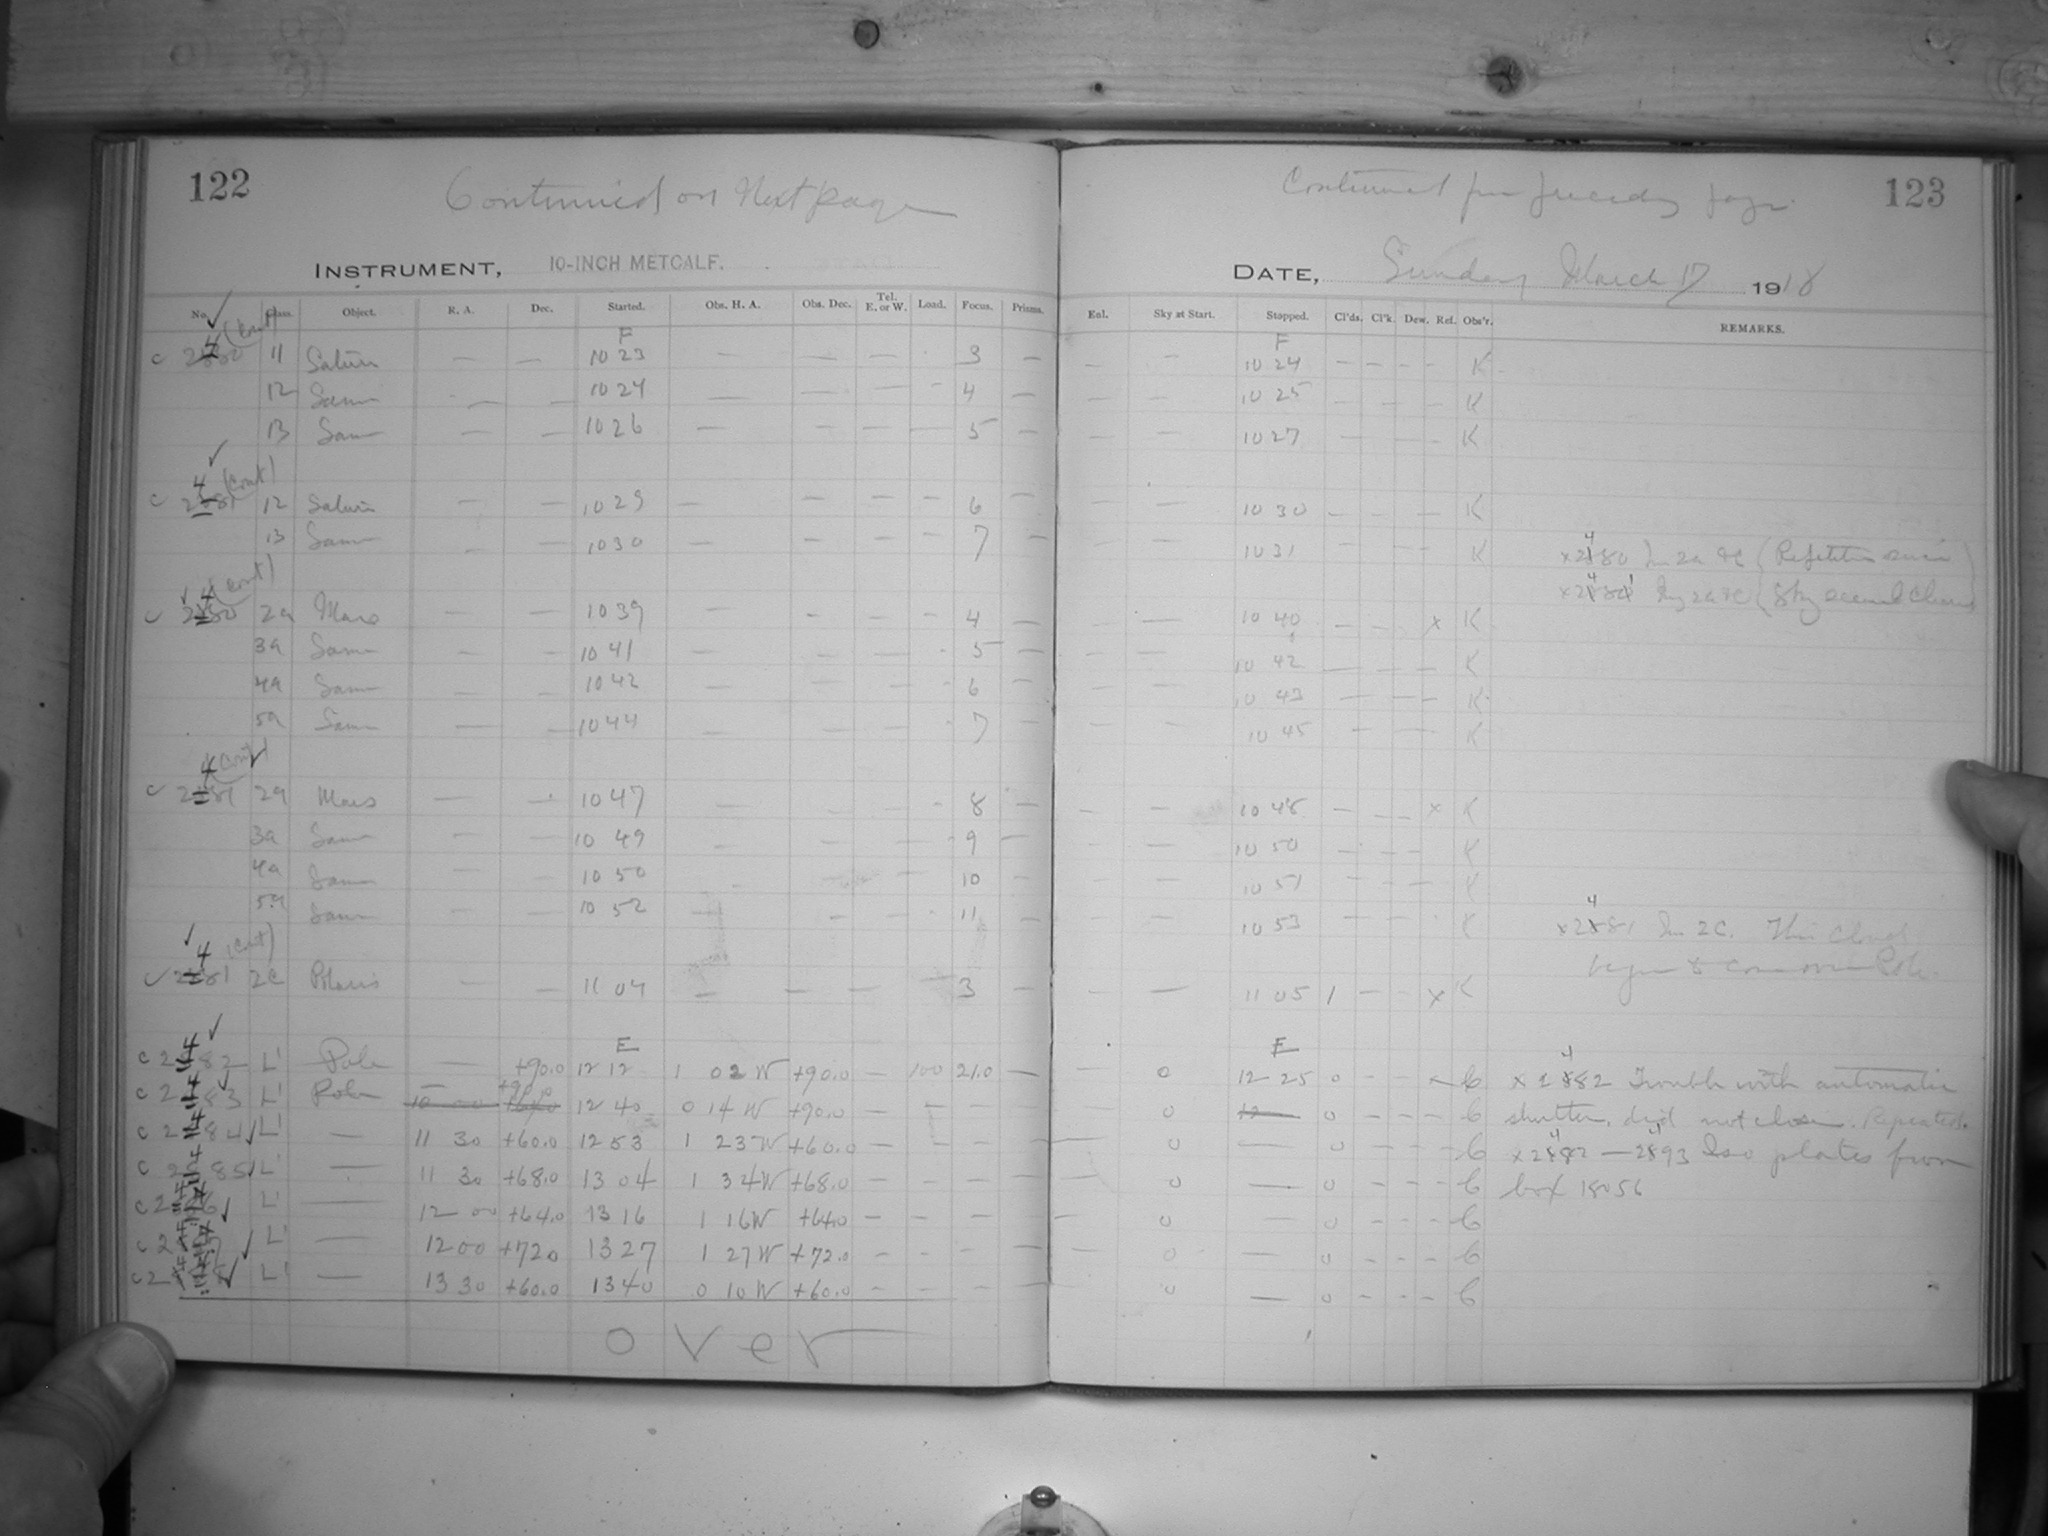 122 Continued on Next page
INSTRUMENT, 10-INCH METCALF.
No. Class. Object. R. A. Dec. Started. Obs. H. A. Obs. Dec. Tel. E. or W. Load. Focus. Prisms.
F
(Cont)
c 2480 11 Saturn — — 10 23 — — — 3 —
12 Same — — 10 24 — — — - 4 —
13 Same — — 10 26 — — — — 5 —
(Cont)
c 2481 12 Saturn — — 10 29 — — — — 6 —
13 Same — — 10 30 — — — — 7 —
(Cont)
c 2480 2a Mars — — 10 39 — — — — 4 —
3a Same — — 10 41 — — — - 5 —
4a Same — — 10 42 — — — - 6 —
5a Same — — 10 44 — — — - 7 —
(Cont)
c 2481 2a Mars — — 10 47 — — - 8 —
3a Same — — 10 49 — — - 9 —
4a Same — — 10 50 — — 10
5a Same — — 10 52 — — - 11 —
(Cont)
c 2481 2c Polaris — — 11 04 — — — — 3 —
E
c 2482 L' Pole — +90.0 12 12 1 02 W +90.0 — 100 21.0 —
c 2483 L' Pole — +90.0 12 40 0 14 W +90.0 — — — —
c 2484 L' — 11 30 +60.0 12 53 1 23 W +60.0 — — —
c 2485 L' — 11 30 +68.0 13 04 1 34 W +68.0 — — — —
c 2 L' — 12 00 +64.0 13 16 1 16 W +64.0 — — — —
c 2 L' — 12 00 +72.0 13 27 1 27 W +72.0 - - - —
c 2 L' — 13 30 +60.0 13 40 0 10 W +60.0 - - - —
over
Continued from preceding page. 123
DATE, Sunday March 17 1918
Enl. Sky at Start. Stopped. Cl'ds. Cl'k. Dew. Ref. Obs'r. REMARKS.
F
— — 10 24 — — — — K
— — 10 25 — — — — K
— — 10 27 — — — — K
— — 10 30 — — — — K
— — 10 31 — — — K x2480 In 2a &c (Repetition since
x2481 In 2a &c (Sky seemed clear)
— — 10 40 — — x K
— — 10 42 — — — K
— — 10 43 — — — K
— — 10 45 — — — K
— — 10 48 — — x K
— — 10 50 — — — K
— — 10 51 — — — K
— — 10 53 — — — K x2481 In 2c. Thin cloud
began to come over Pole.
— — 11 05 1 — - x K
E
— 0 12 25 0 - - x C x 2482 Trouble with automatic
0 0 - - - C shutter. did not close. Repeated.
— 0 — 0 - - - C x2482 — 2493 Iso plates from
0 — 0 - - - C box 18056
— 0 — 0 - - - C
— 0 — 0 - - - C
0 — 0 - - - C